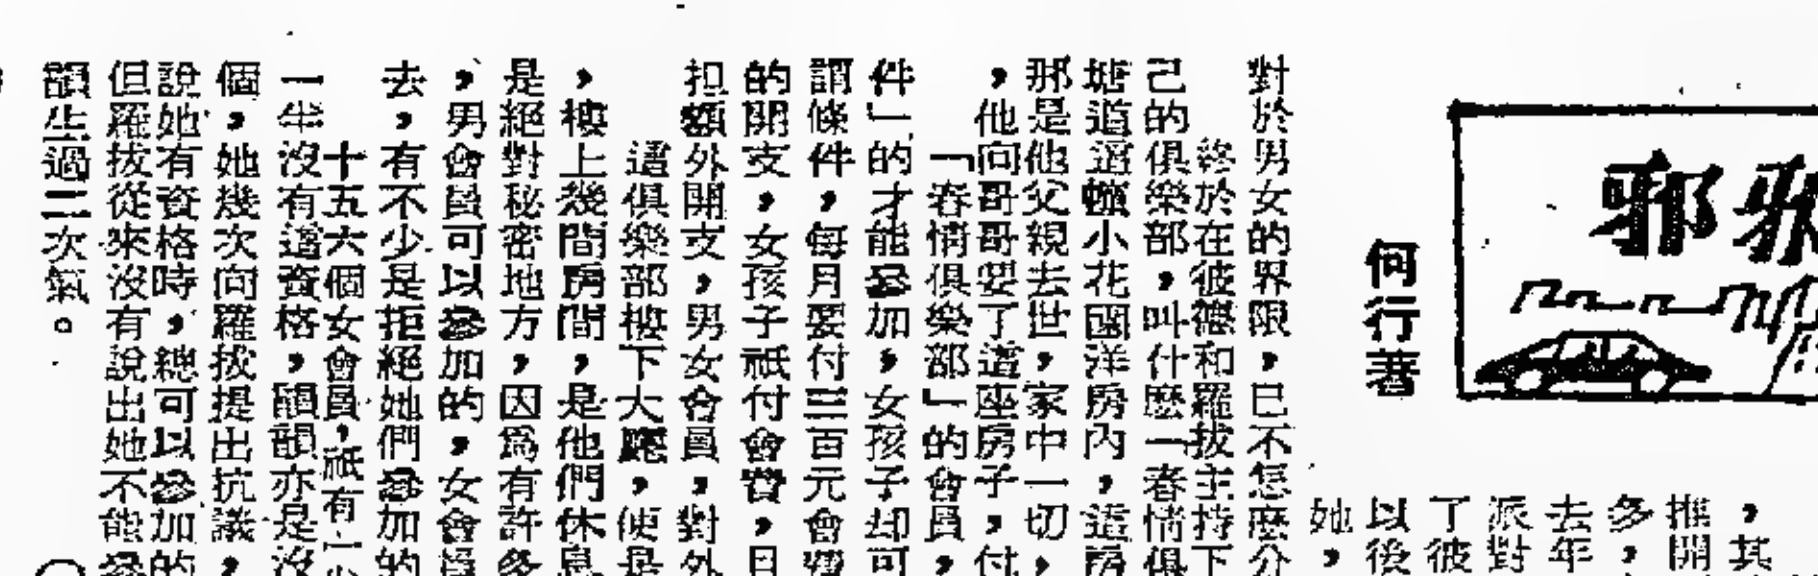 邪
何行著
，其
推開
多，
去年
派對
了彼
以後
她，
對於男女的界限，已不怎麼分
終於在彼德和羅拔主持下
己的俱樂部，叫什麼「春情俱
塘道這幢小花園洋房內，這房
那是他父親去世，家中一切，
，他向哥哥要了這座房子，付
「春情俱樂部」的會員，
件」的才能參加，女孩子却可
謂條件，每月要付三百元會費
的開支，女孩子祇付會費，日
担額外開支，男女會員，對外
這俱樂部樓下大廳，便是
，樓上幾間房間，是他們休息
是絕對秘密地方，因為有許多
，男會員可以參加的，女會員
去，有不少是拒絕她們參加的
十五六個女會員，祇有一少
一半沒有這資格，韻韻亦是沒
個，她幾次向羅拔提出抗議，
說她有資格時，總可以參加的
但羅拔從來沒有說出她不能參
韻生過二次氣。